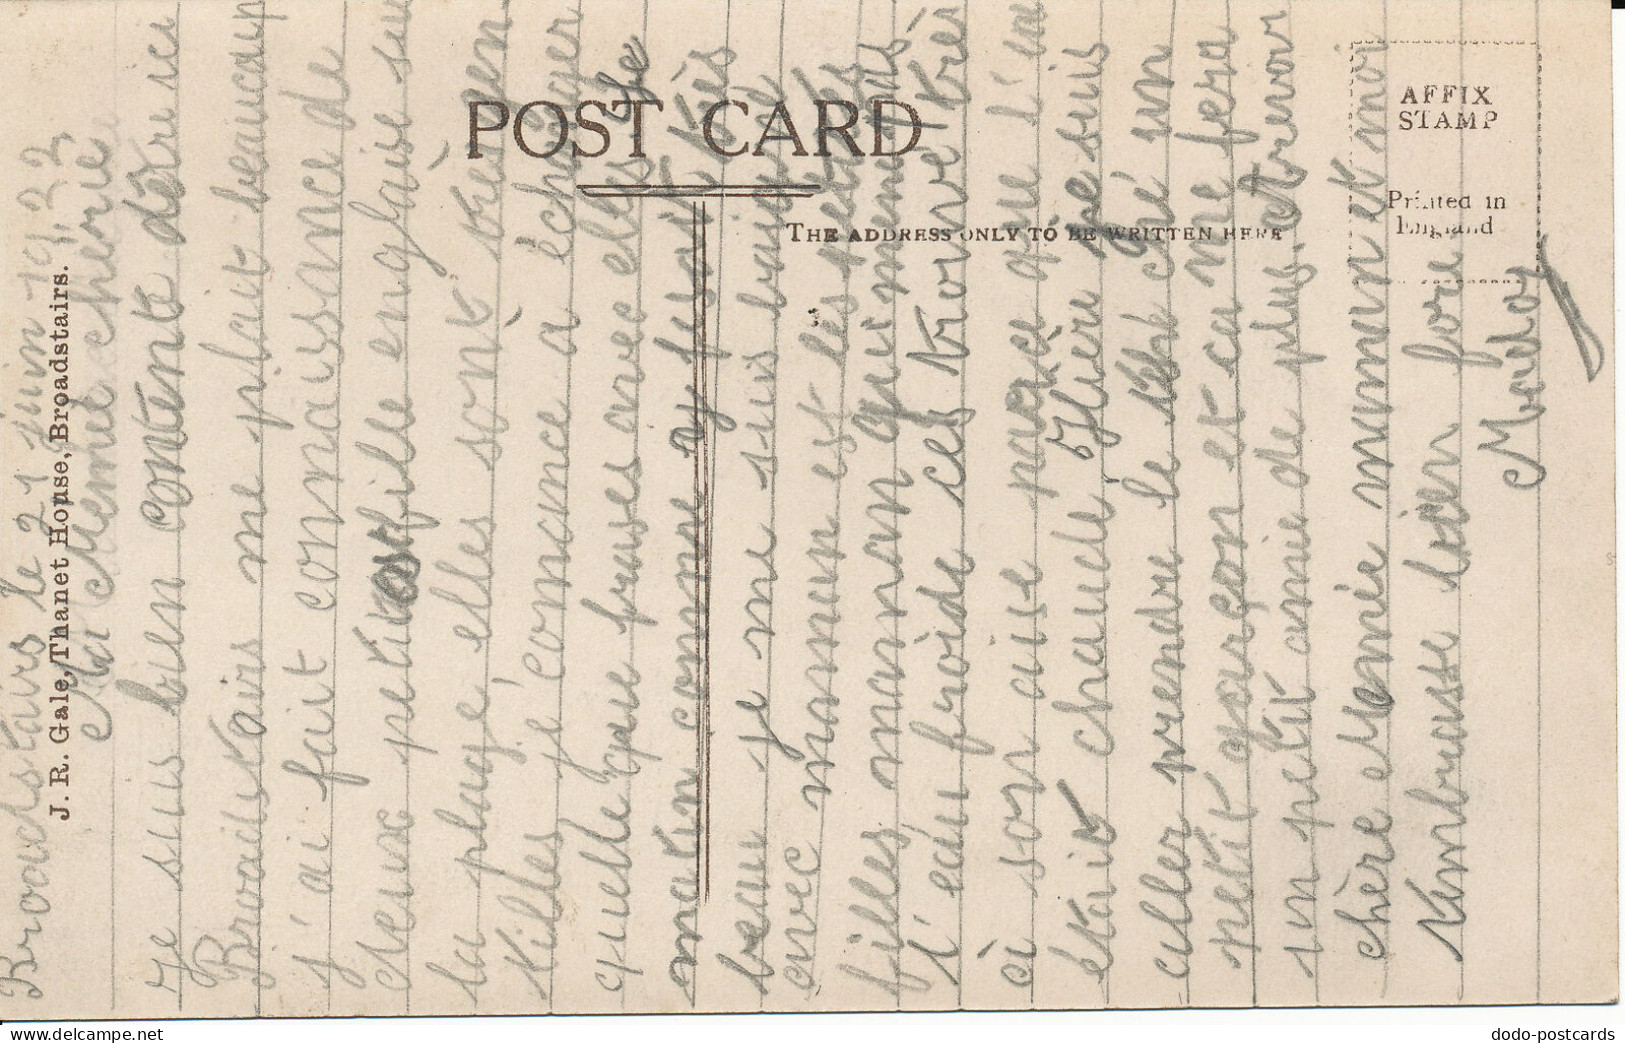 POST CARD
THE ADDRESS ONLY TO BE WRITTEN HERE
AFFIX
STAMP
Printed in
England
J. R. Gale, Thanet House, Broadstairs.
Broadstairs le 21 juin 1922
Ma Mémé chérie
je suis bien contente d'être ici
Broadstairs me plait beaucoup
j'ai fait connaissance de
deux petites filles anglaise sur
la plage, elles sont très gen
tilles je comance à échanger
quelle que frases avec elles Ce
matin comme ay fesait très
beau je me suis baignée
avec maman est les petites
filles maman qui menait pas
l'eau froide ces trouvé très
à son aise parce que l'eau
était chaude, Hière je suis
aller prendre le thé ché un
petit garçon et ca me fera
un petit amie de plus, atrevoir
chère Mémée maman et moi
t'embrasse bien fore
Madoy
dodo-postcards